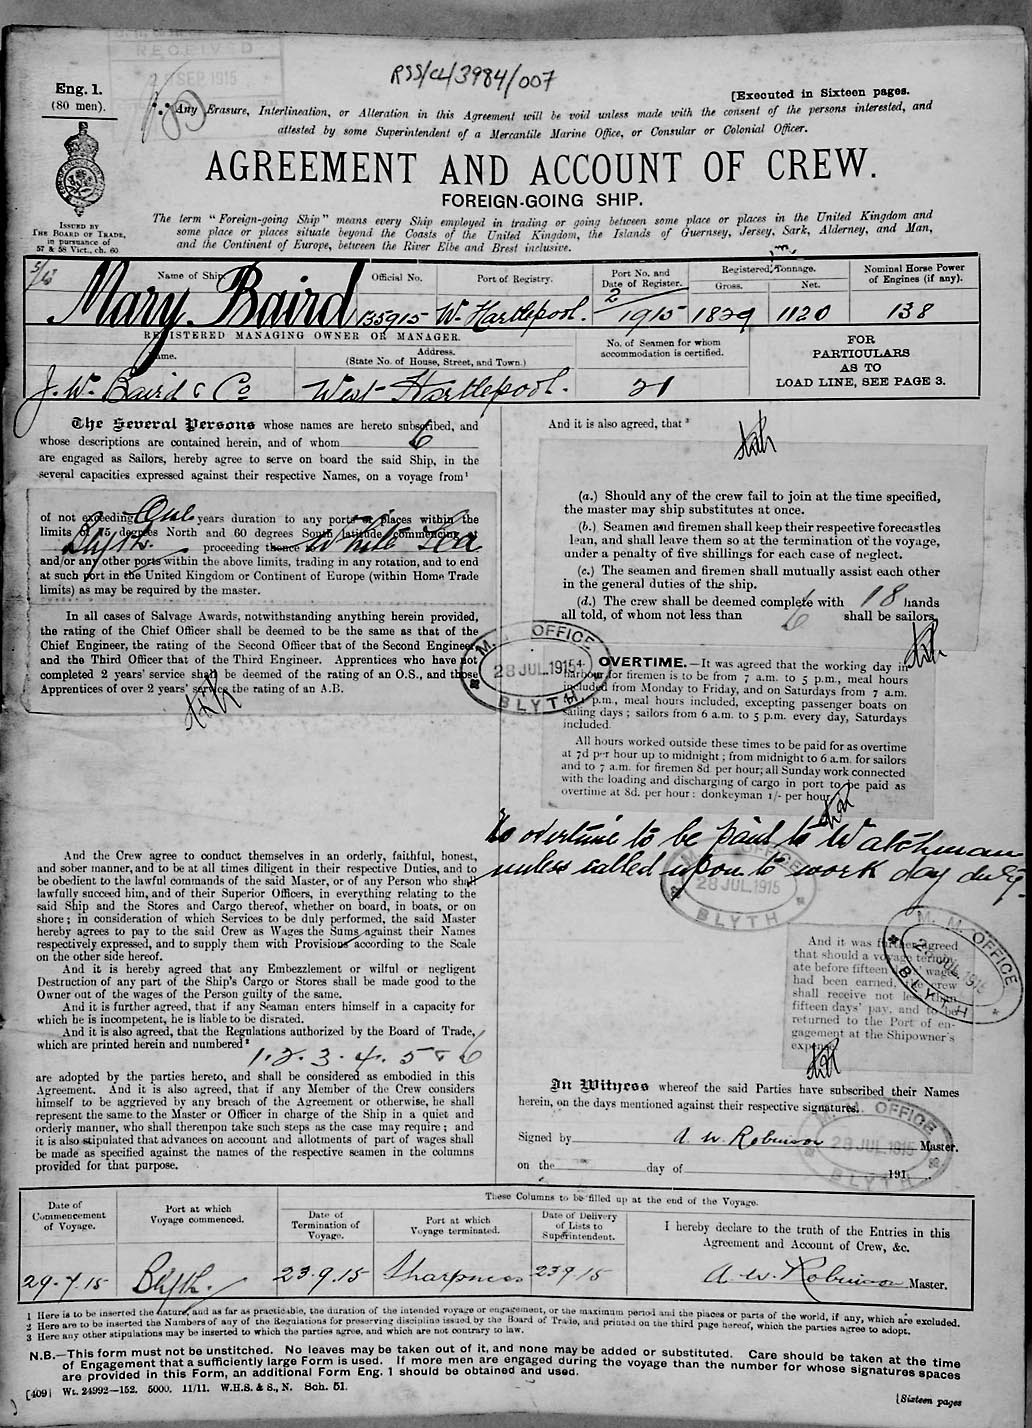 RECEIVED
SEP 1915
RSS/CL/3984/007
Eng. 1.
(80 men).
[Executed in Sixteen pages.
Any Erasure, Interlineation, or Alteration in this Agreement will be void unless made with the consent of the persons interested, and
attested by some Superintendent of a Mercantile Marine Office, or Consular or Colonial Officer.
AGREEMENT AND ACCOUNT OF CREW.
FOREIGN-GOING SHIP.
ISSUED BY
THE BOARD OF TRADE,
in pursuance of
57 & 58 Vict., ch. 60
The term "Foreign-going Ship" means every Ship employed in trading or going between some place or places in the United Kingdom and
some place or places situate beyond the Coasts of the United Kingdom, the Islands of Guernsey, Jersey, Sark, Alderney, and Man,
and the Continent of Europe, between the River Elbe and Brest inclusive.
Name of Ship. Official No. Port of Registry. Port No. and Date of Register. Registered Tonnage. Gross. Net. Nominal Horse Power of Engines (if any).
Mary Baird 135915 W. Hartlepool. 2/1915 1829 1120 138
REGISTERED MANAGING OWNER OR MANAGER.
Name. Address. (State No. of House, Street, and Town.) No. of Seamen for whom accommodation is certified.
FOR PARTICULARS AS TO LOAD LINE, SEE PAGE 3.
J. Wm. Baird & Co West Hartlepool. 21
The Several Persons whose names are hereto subscribed, and
whose descriptions are contained herein, and of whom 6
are engaged as Sailors, hereby agree to serve on board the said Ship, in the
several capacities expressed against their respective Names, on a voyage from¹
of not exceeding One years duration to any ports or places within the
limits of 75 degrees North and 60 degrees South latitude, commencing at
Blyth. proceeding thence to White Sea
and/or any other ports within the above limits, trading in any rotation, and to end
at such port in the United Kingdom or Continent of Europe (within Home Trade
limits) as may be required by the master.
In all cases of Salvage Awards, notwithstanding anything herein provided,
the rating of the Chief Officer shall be deemed to be the same as that of the
Chief Engineer, the rating of the Second Officer that of the Second Engineer,
and the Third Officer that of the Third Engineer. Apprentices who have not
completed 2 years' service shall be deemed of the rating of an O.S., and those
Apprentices of over 2 years' service the rating of an A.B.
And the Crew agree to conduct themselves in an orderly, faithful, honest,
and sober manner, and to be at all times diligent in their respective Duties, and to
be obedient to the lawful commands of the said Master, or of any Person who shall
lawfully succeed him, and of their Superior Officers, in everything relating to the
said Ship and the Stores and Cargo thereof, whether on board, in boats, or on
shore; in consideration of which Services to be duly performed, the said Master
hereby agrees to pay to the said Crew as Wages the Sums against their Names
respectively expressed, and to supply them with Provisions according to the Scale
on the other side hereof.
And it is hereby agreed that any Embezzlement or wilful or negligent
Destruction of any part of the Ship's Cargo or Stores shall be made good to the
Owner out of the wages of the Person guilty of the same.
And it is further agreed, that if any Seaman enters himself in a capacity for
which he is incompetent, he is liable to be disrated.
And it is also agreed, that the Regulations authorized by the Board of Trade,
which are printed herein and numbered²
1. 2. 3. 4. 5 & 6
are adopted by the parties hereto, and shall be considered as embodied in this
Agreement. And it is also agreed, that if any Member of the Crew considers
himself to be aggrieved by any breach of the Agreement or otherwise, he shall
represent the same to the Master or Officer in charge of the Ship in a quiet and
orderly manner, who shall thereupon take such steps as the case may require; and
it is also stipulated that advances on account and allotments of part of wages shall
be made as specified against the names of the respective seamen in the columns
provided for that purpose.
And it is also agreed, that³
(a.) Should any of the crew fail to join at the time specified,
the master may ship substitutes at once.
(b.) Seamen and firemen shall keep their respective forecastles
clean, and shall leave them so at the termination of the voyage,
under a penalty of five shillings for each case of neglect.
(c.) The seamen and firemen shall mutually assist each other
in the general duties of the ship.
(d.) The crew shall be deemed complete with 18 hands
all told, of whom not less than 6 shall be sailors.
M. M. OFFICE
28 JUL.1915
BLYTH
OVERTIME.—It was agreed that the working day in
harbour for firemen is to be from 7 a.m. to 5 p.m., meal hours
included from Monday to Friday, and on Saturdays from 7 a.m.
p.m., meal hours included, excepting passenger boats on
sailing days; sailors from 6 a.m. to 5 p.m. every day, Saturdays
included.
All hours worked outside these times to be paid for as overtime
at 7d per hour up to midnight; from midnight to 6 a.m. for sailors
and to 7 a.m. for firemen 8d. per hour; all Sunday work connected
with the loading and discharging of cargo in port to be paid as
overtime at 8d. per hour: donkeyman 1/- per hour.
No overtime to be paid to Watchman
unless called upon to work day duty.
M. M. OFFICE
28 JUL.1915
BLYTH
And it was further agreed
that should a voyage termin-
ate before fifteen days' wages
had been earned, the crew
shall receive not less than
fifteen days' pay, and to be
returned to the Port of en-
gagement at the Shipowner's
expense.
M. M. OFFICE
28 JUL.1915
BLYTH
In Witness whereof the said Parties have subscribed their Names
herein, on the days mentioned against their respective signatures.
Signed by A. W. Robinson Master.
on the day of 191
M. M. OFFICE
28 JUL.1915
BLYTH
These Columns to be filled up at the end of the Voyage.
Date of Commencement of Voyage. Port at which Voyage commenced. Date of Termination of Voyage. Port at which Voyage terminated. Date of Delivery of Lists to Superintendent. I hereby declare to the truth of the Entries in this Agreement and Account of Crew, &c.
29.7.15 Blyth. 23.9.15 Sharpness 23 9.15 A. W. Robinson Master.
1 Here is to be inserted the nature, and as far as practicable, the duration of the intended voyage or engagement, or the maximum period and the places or parts of the world, if any, which are excluded.
2 Here are to be inserted the Numbers of any of the Regulations for preserving discipline issued by the Board of Trade, and printed on the third page hereof, which the parties agree to adopt.
3 Here any other stipulations may be inserted to which the parties agree, and which are not contrary to law.
N.B.—This form must not be unstitched. No leaves may be taken out of it, and none may be added or substituted. Care should be taken at the time
of Engagement that a sufficiently large Form is used. If more men are engaged during the voyage than the number for whose signatures spaces
are provided in this Form, an additional Form Eng. 1 should be obtained and used.
[409] Wt. 24992—152. 5000. 11/11. W.H.S. & S., N. Sch. 51.
[Sixteen pages